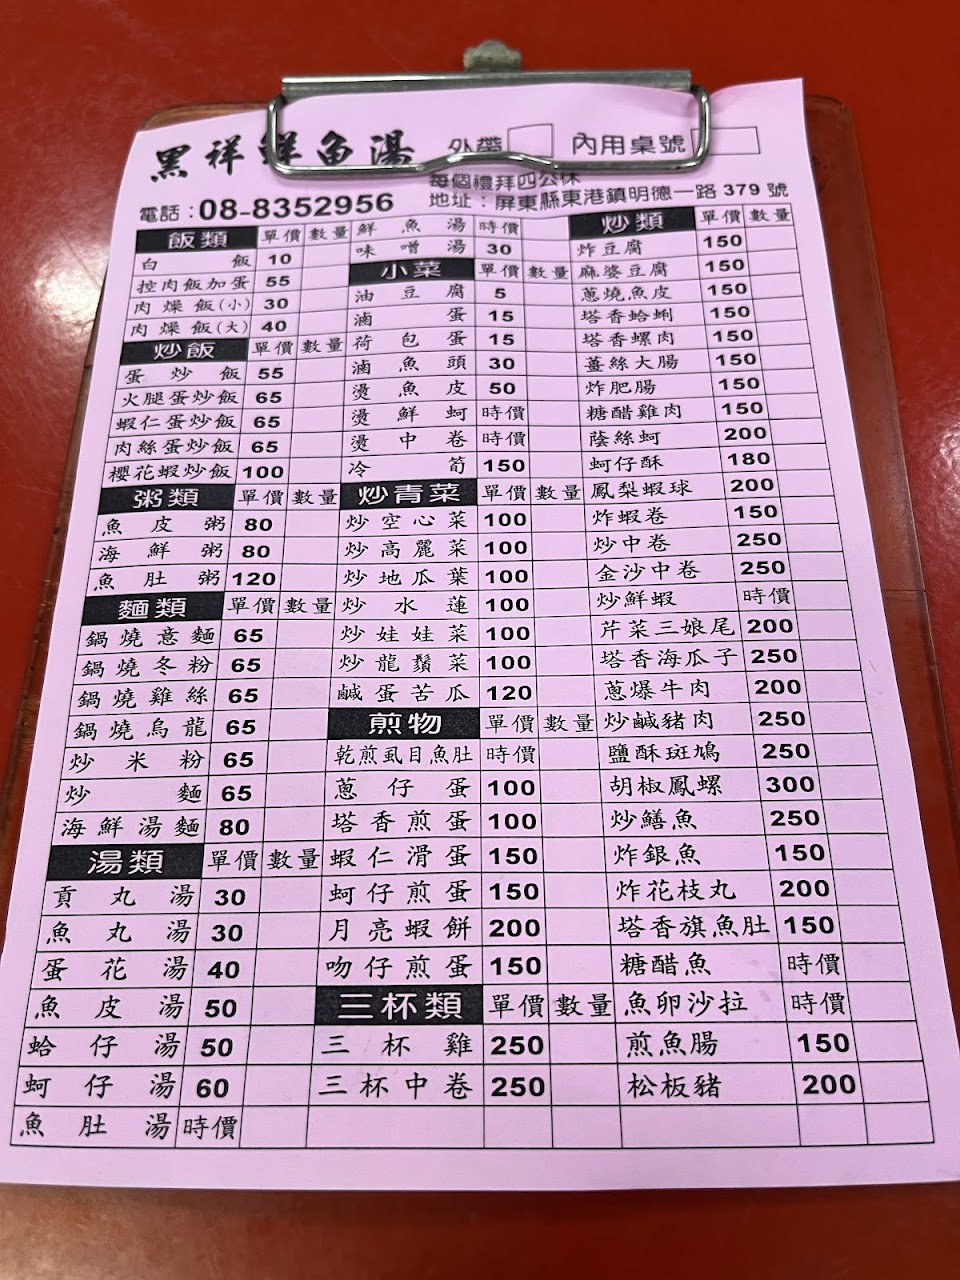 黑祥鮮魚湯 外帶 內用桌號
每個禮拜四公休
電話：08-8352956 地址：屏東縣東港鎮明德一路379號
飯類 單價 數量
白飯 10
控肉飯加蛋 55
肉燥飯(小) 30
肉燥飯(大) 40
炒飯 單價 數量
蛋炒飯 55
火腿蛋炒飯 65
蝦仁蛋炒飯 65
肉絲蛋炒飯 65
櫻花蝦炒飯 100
粥類 單價 數量
魚皮粥 80
海鮮粥 80
魚肚粥 120
麵類 單價 數量
鍋燒意麵 65
鍋燒冬粉 65
鍋燒雞絲 65
鍋燒烏龍 65
炒米粉 65
炒麵 65
海鮮湯麵 80
湯類 單價 數量
貢丸湯 30
魚丸湯 30
蛋花湯 40
魚皮湯 50
蛤仔湯 50
蚵仔湯 60
魚肚湯 時價
鮮魚湯 時價
味噌湯 30
小菜 單價 數量
油豆腐 5
滷蛋 15
荷包蛋 15
滷魚頭 30
燙魚皮 50
燙鮮蚵 時價
燙中卷 時價
冷筍 150
炒青菜 單價 數量
炒空心菜 100
炒高麗菜 100
炒地瓜葉 100
炒水蓮 100
炒娃娃菜 100
炒龍鬚菜 100
鹹蛋苦瓜 120
煎物 單價 數量
乾煎虱目魚肚 時價
蔥仔蛋 100
塔香煎蛋 100
蝦仁滑蛋 150
蚵仔煎蛋 150
月亮蝦餅 200
吻仔煎蛋 150
三杯類 單價 數量
三杯雞 250
三杯中卷 250
炒類 單價 數量
炸豆腐 150
麻婆豆腐 150
蔥燒魚皮 150
塔香蛤蜊 150
塔香螺肉 150
薑絲大腸 150
炸肥腸 150
糖醋雞肉 150
蔭絲蚵 200
蚵仔酥 180
鳳梨蝦球 200
炸蝦卷 150
炒中卷 250
金沙中卷 250
炒鮮蝦 時價
芹菜三娘尾 200
塔香海瓜子 250
蔥爆牛肉 200
炒鹹豬肉 250
鹽酥斑鳩 250
胡椒鳳螺 300
炒鱔魚 250
炸銀魚 150
炸花枝丸 200
塔香旗魚肚 150
糖醋魚 時價
魚卵沙拉 時價
煎魚腸 150
松板豬 200